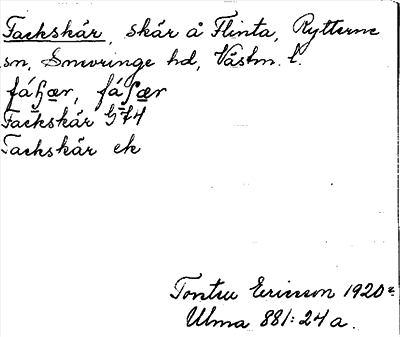 Tackskär, skär å Flinta, Rytterne
sn, Snevringe hd, Västm. l.
Tackskär G 74
Tackskär ek
Torsten Ericsson 1920
Ulma 881:24a.